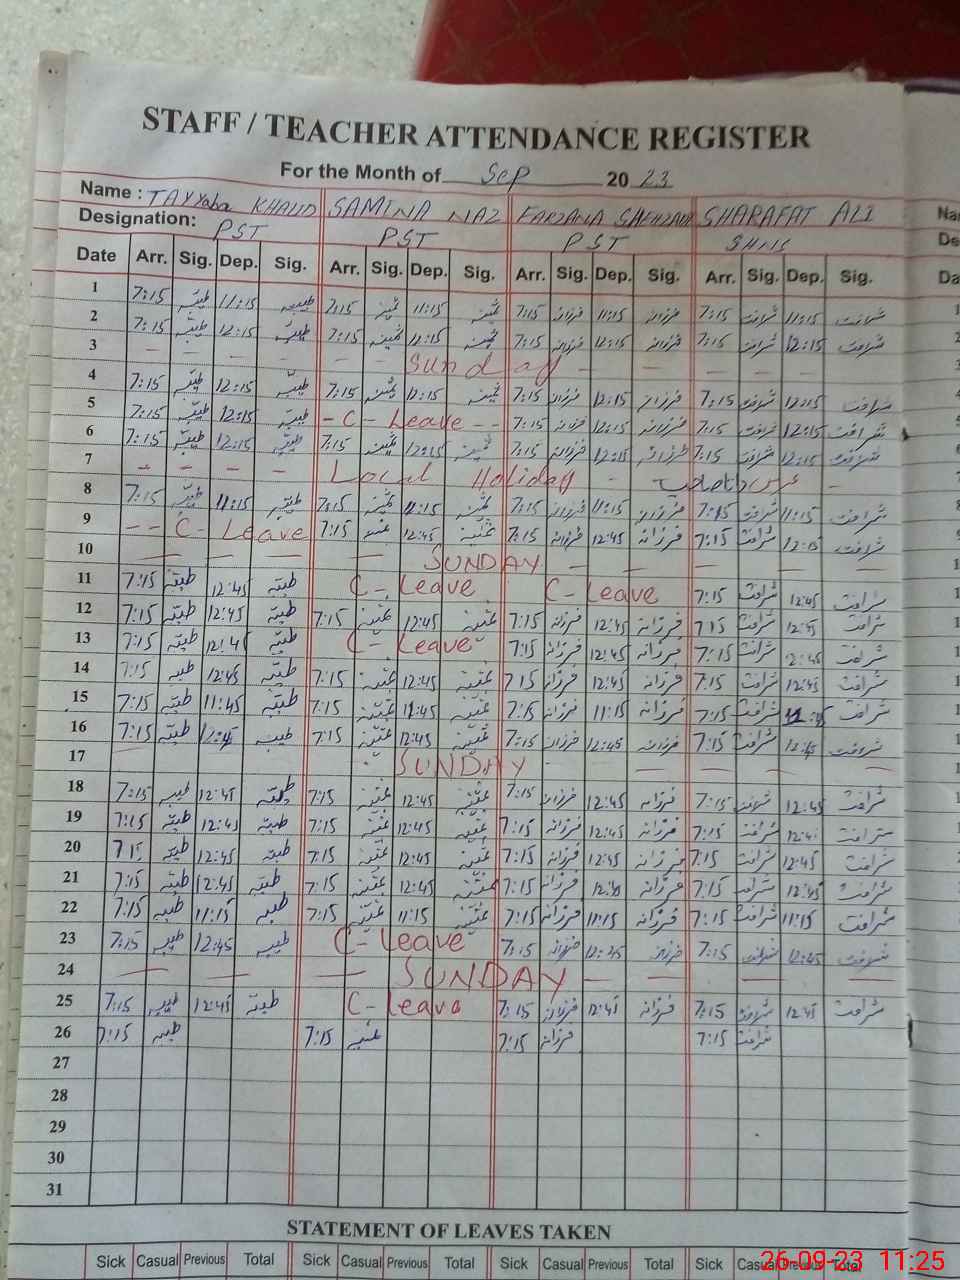 STAFF / TEACHER ATTENDANCE REGISTER
For the Month of Sep 20 23
Name : TAYYaba KHALID SAMINA NAZ FARZANA SHARAFAT ALI
Designation: PST PST PST
Date Arr. Sig. Dep. Sig. Arr. Sig. Dep. Sig. Arr. Sig. Dep. Sig. Arr. Sig. Dep. Sig.
1 7:15 طیبہ 11:15 طیبہ 7:15 ثمینہ 11:15 ثمینہ 7:15 فرزانہ 11:15 فرزانہ 7:15 شرافت 11:15 شرافت
2 7:15 طیبہ 12:15 طیبہ 7:15 ثمینہ 12:15 ثمینہ 7:15 فرزانہ 12:15 فرزانہ 7:15 شرافت 12:15 شرافت
3 – – – – – Sunday – – – – – –
4 7:15 طیبہ 12:15 طیبہ 7:15 ثمینہ 12:15 ثمینہ 7:15 فرزانہ 12:15 فرزانہ 7:15 شرافت 12:15 شرافت
5 7:15 طیبہ 12:15 طیبہ - C - Leave - - 7:15 فرزانہ 12:15 فرزانہ 7:15 شرافت 12:15 شرافت
6 7:15 طیبہ 12:15 طیبہ 7:15 ثمینہ 12:15 ثمینہ 7:15 فرزانہ 12:15 فرزانہ 7:15 شرافت 12:15 شرافت
7 – – – – Local Holiday – عرس داتا صاحب –
8 7:15 طیبہ 11:15 طیبہ 7:15 ثمینہ 11:15 ثمینہ 7:15 فرزانہ 11:15 فرزانہ 7:15 شرافت 11:15 شرافت
9 - - C - Leave 7:15 ثمینہ 12:45 ثمینہ 7:15 فرزانہ 12:45 فرزانہ 7:15 شرافت شرافت
10 – – – SUNDAY – – – – –
11 7:15 طیبہ 12:45 طیبہ C - Leave C - Leave 7:15 شرافت 12:45 شرافت
12 7:15 طیبہ 12:45 طیبہ 7:15 ثمینہ 12:45 ثمینہ 7:15 فرزانہ 12:45 فرزانہ 7 15 شرافت 12:45 شرافت
13 7:15 طیبہ 12:45 طیبہ C - Leave 7:15 فرزانہ 12:45 فرزانہ 7:15 شرافت 12:45 شرافت
14 7:15 طیبہ 12:45 طیبہ 7:15 ثمینہ 12:45 ثمینہ 7 15 فرزانہ 12:45 فرزانہ 7:15 شرافت 12:45 شرافت
15 7:15 طیبہ 11:45 طیبہ 7:15 ثمینہ 11:45 ثمینہ 7:15 فرزانہ 11:15 فرزانہ 7:15 شرافت شرافت
16 7:15 طیبہ 12:45 طیبہ 7:15 ثمینہ 12:45 ثمینہ 7:15 فرزانہ 12:45 فرزانہ 7:15 شرافت 12:45 شرافت
17 – SUNDAY – – – –
18 7:15 طیبہ 12:45 طیبہ 7:15 ثمینہ 12:45 ثمینہ 7:15 فرزانہ 12:45 فرزانہ 7:15 شرافت 12:45 شرافت
19 7:15 طیبہ 12:45 طیبہ 7:15 ثمینہ 12:45 ثمینہ 7:15 فرزانہ 12:45 فرزانہ 7:15 شرافت 12:45 شرافت
20 7 15 طیبہ 12:45 طیبہ 7:15 ثمینہ 12:45 ثمینہ 7:15 فرزانہ 12:45 فرزانہ 7:15 شرافت 12:45 شرافت
21 7:15 طیبہ 12:45 طیبہ 7:15 ثمینہ 12:45 ثمینہ 7:15 فرزانہ فرزانہ 7:15 شرافت 12:45 شرافت
22 7:15 طیبہ 11:15 طیبہ 7:15 ثمینہ 11:15 ثمینہ 7:15 فرزانہ 11:15 فرزانہ 7:15 شرافت 11:15 شرافت
23 7:15 طیبہ 12:45 طیبہ C - Leave 7:15 فرزانہ 12:45 فرزانہ 7:15 شرافت 12:45 شرافت
24 – – – SUNDAY – – – –
25 7:15 طیبہ 12:45 طیبہ C - Leave 7:15 فرزانہ 12:45 فرزانہ 7:15 شرافت 12:45 شرافت
26 7:15 طیبہ 7:15 ثمینہ 7:15 فرزانہ 7:15 شرافت
27
28
29
30
31
STATEMENT OF LEAVES TAKEN
Sick Casual Previous Total Sick Casual Previous Total Sick Casual Previous Total Sick Casual Previous Total
26-09-23 11:25